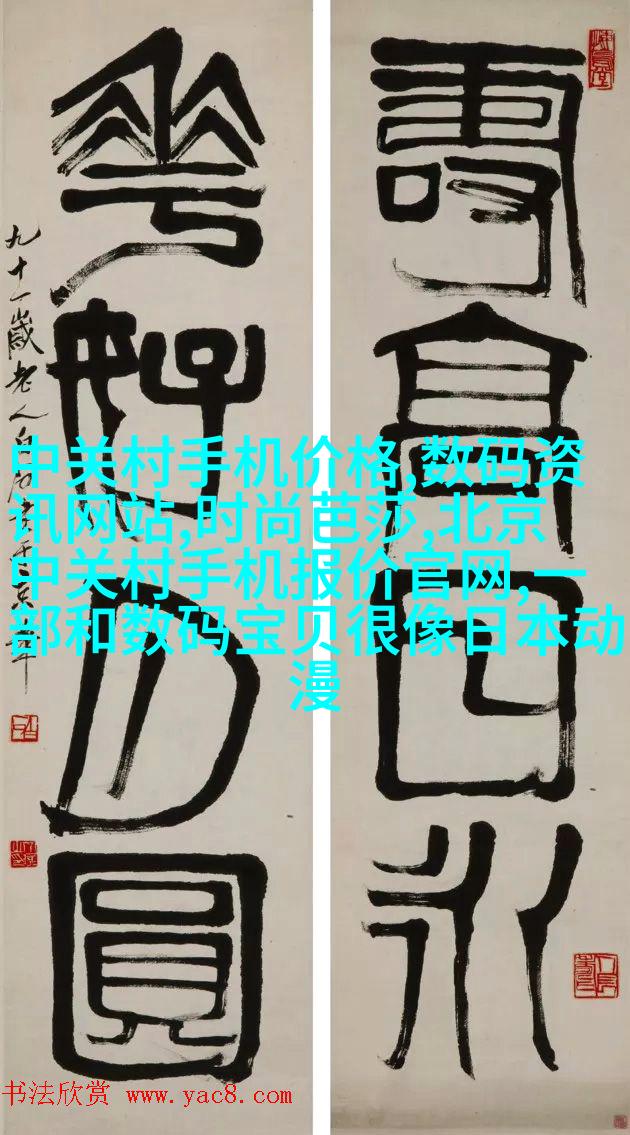 壽高日永
華好月圓
九十一歲老人白石書于京華
中关村手机价格,数码资
讯网站,时尚芭莎,北京
中关村手机报价官网,一
部和数码宝贝很像日本动
漫
书法欣赏 www.yac8.com